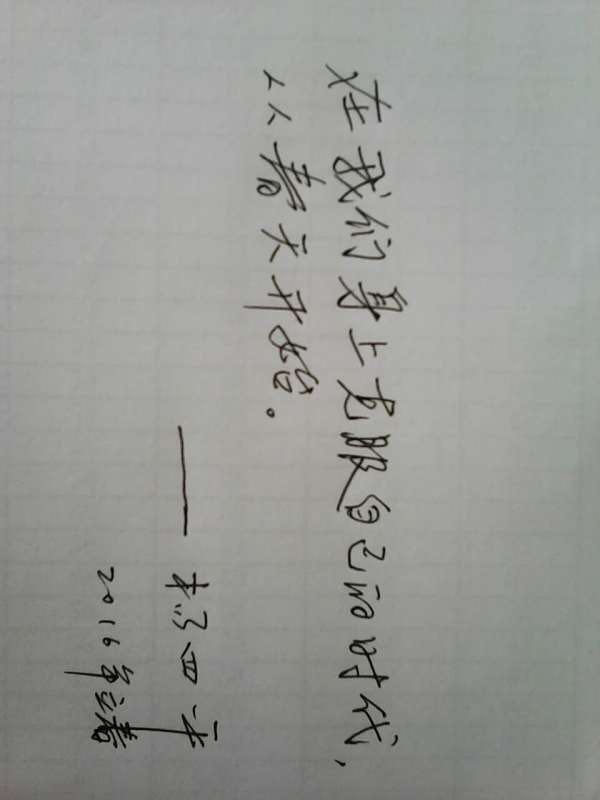 在我们身上克服自己的时代，
从春天开始。
—— 杨四平
2016年立春